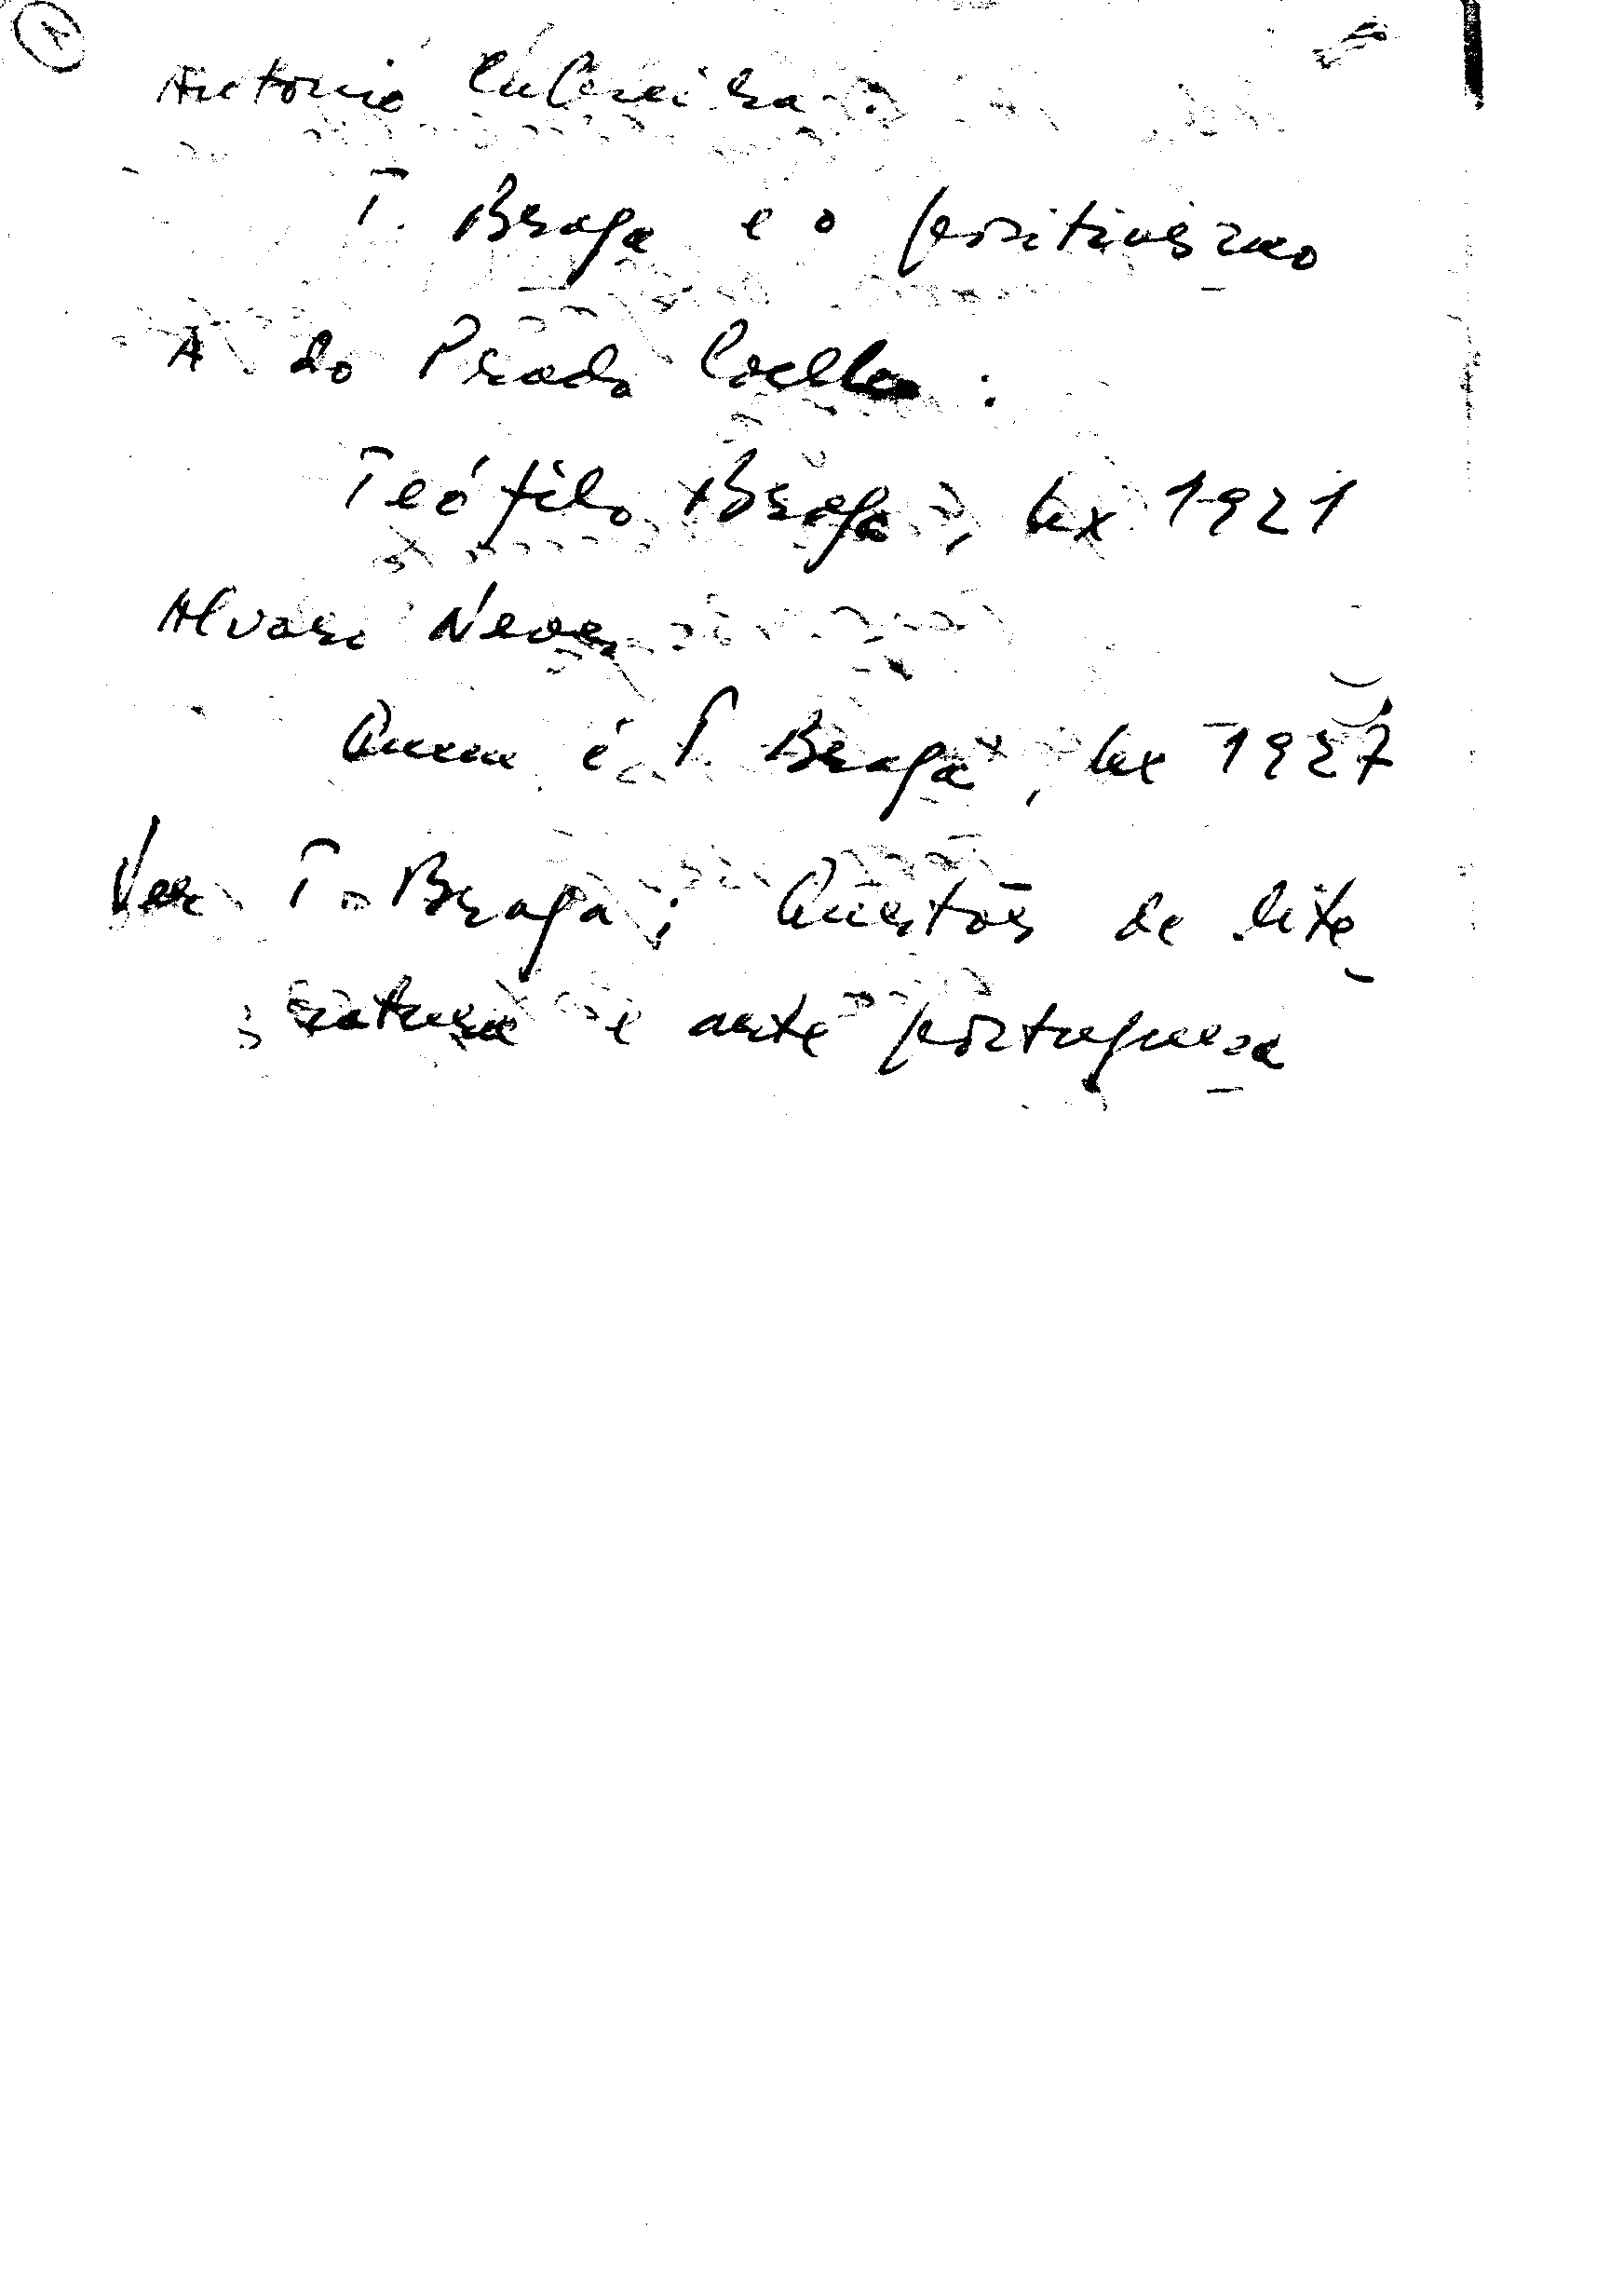 Antonio Cabreira :
T. Braga e o positivismo
A do Prado Coelho :
Teófilo Braga, Lx 1921
Alvaro Neves
Quem é T. Braga, Lx 1927
Ver T. Braga; Questões de lite
ratura e arte portuguesa